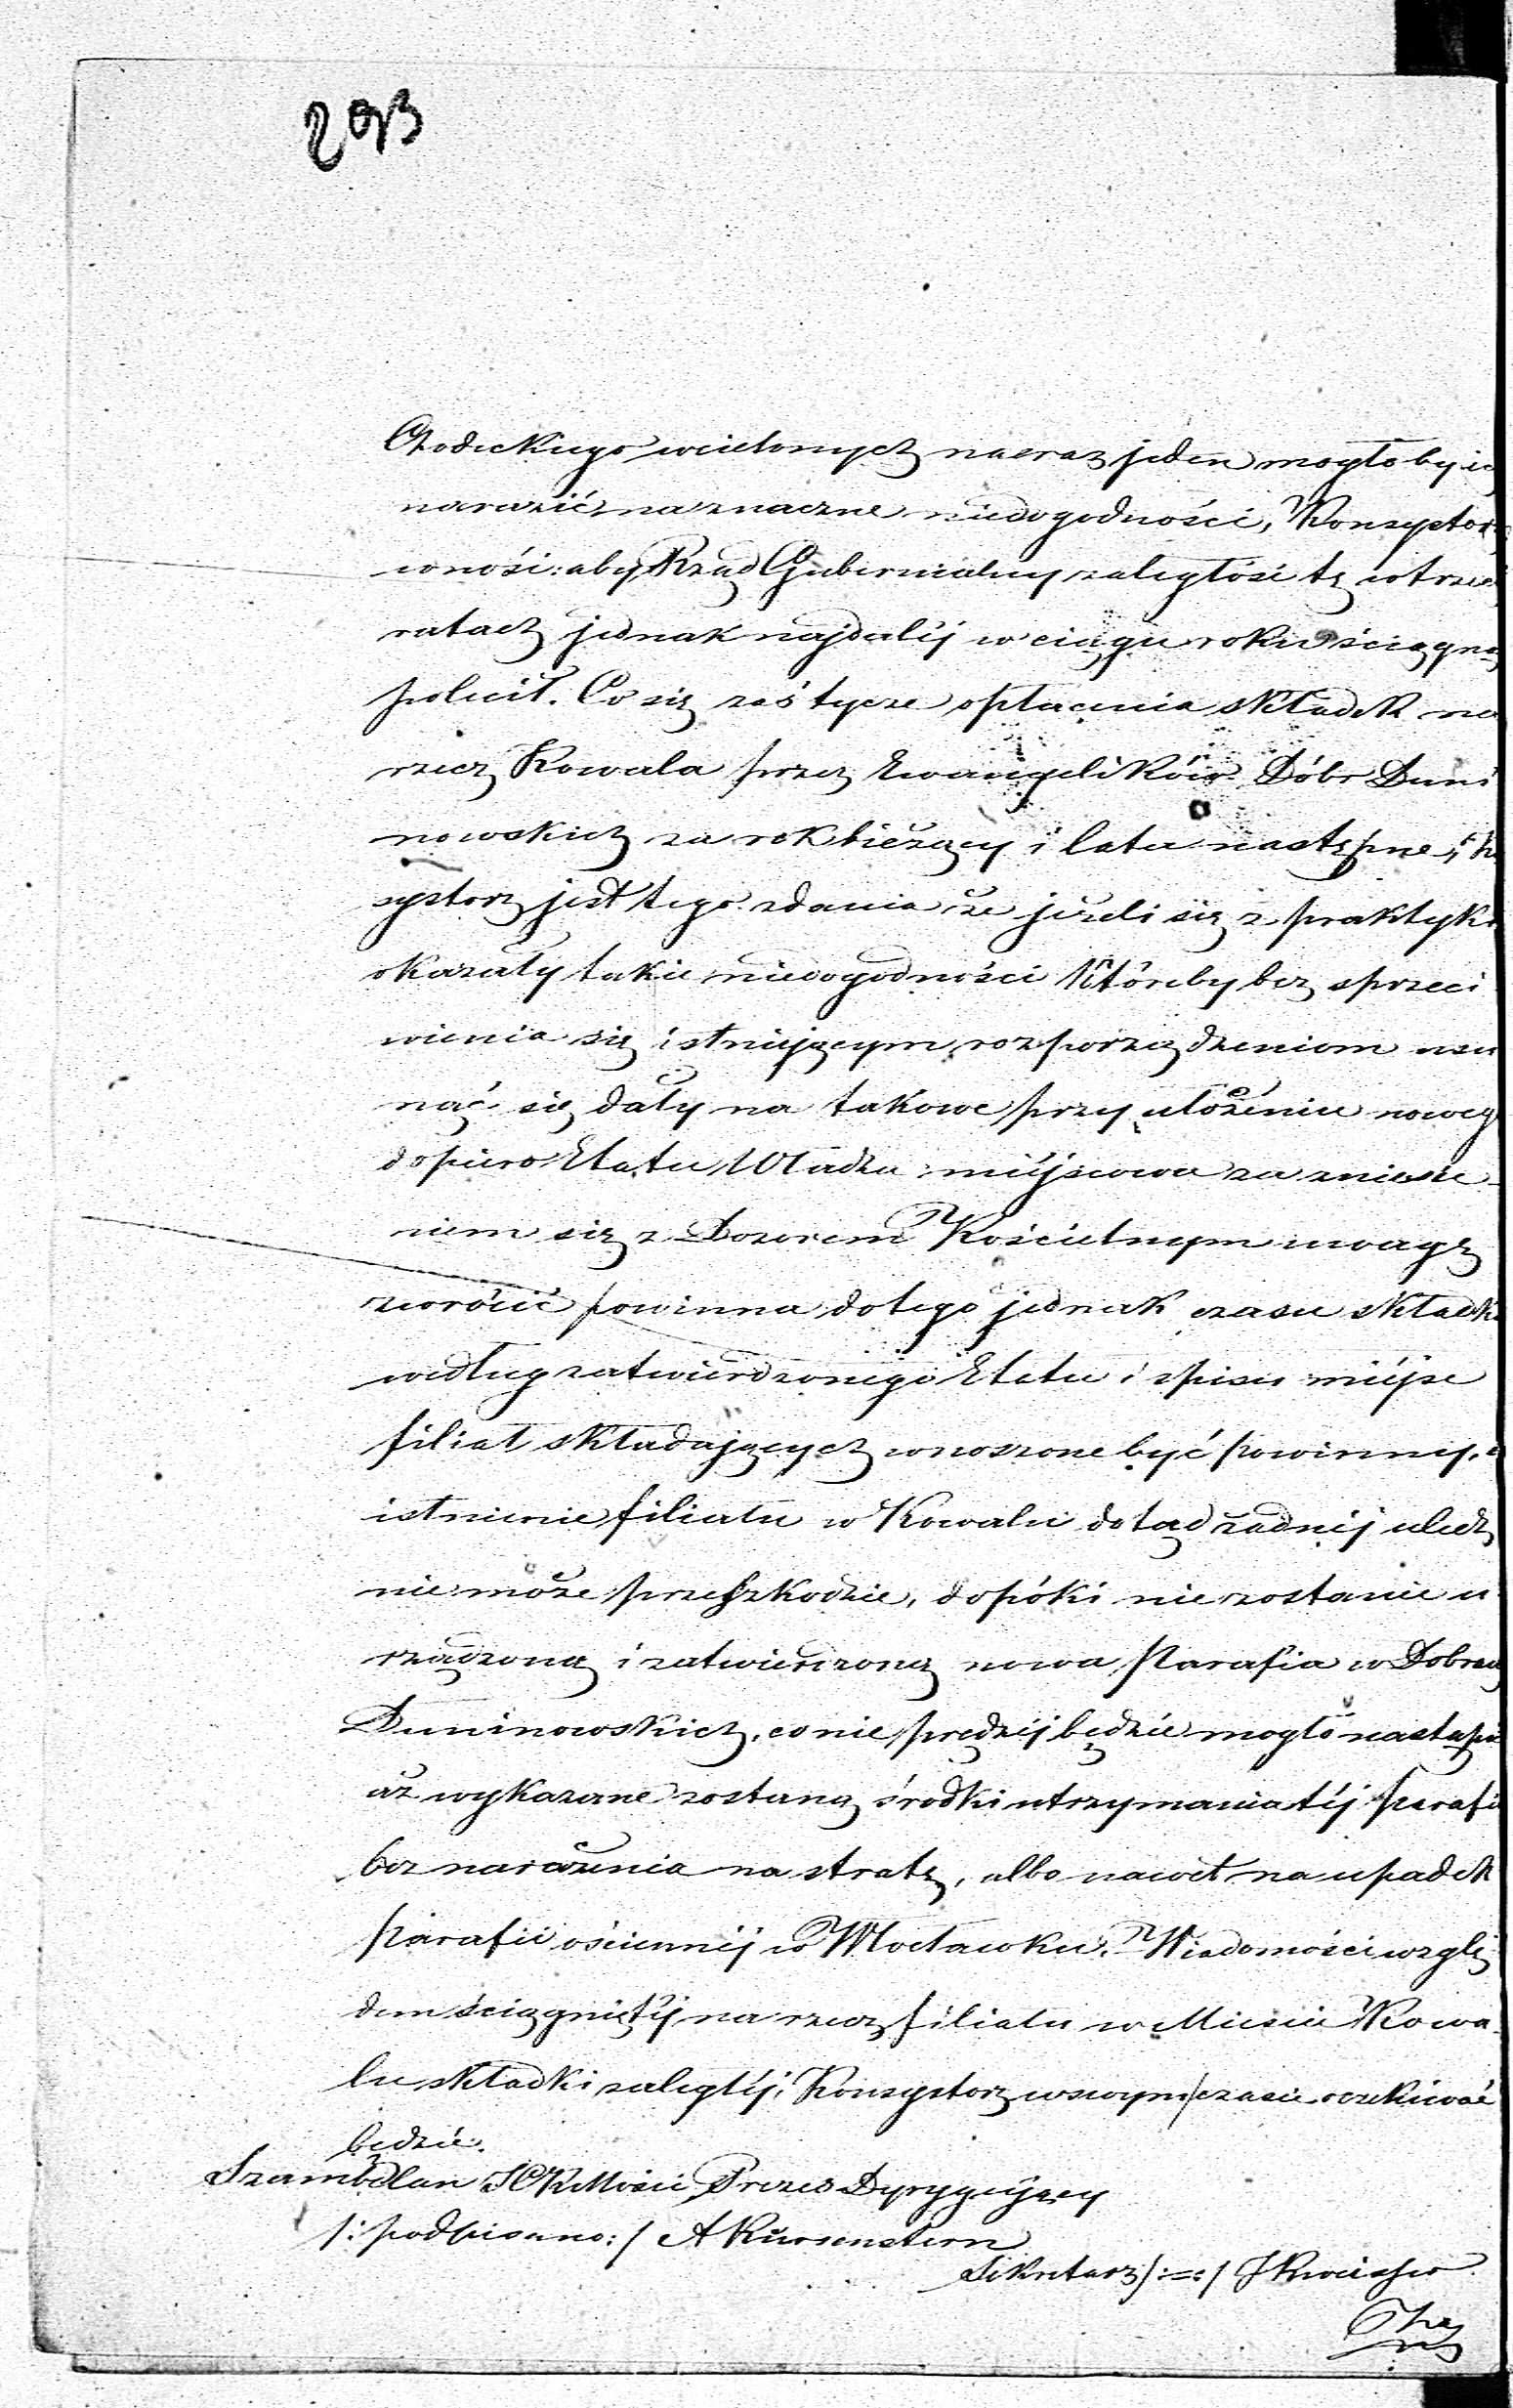 293
Chodeckiego wcielonych naeraz jeden mogłoby ic
narazić na znaczne niedogodności, Konsystorz
wnosi: aby Rząd Gubernialny zaległość tę w trzech
ratach jednak najdaléj w ciągu roku ściągną
polecił. Co się zaś tycze opłacania składek na
rzecz Kowala przez Ewangelików Dóbr Duni
nowskich za rok bieżący i lata następne,
systorz jest tego zdania że jeżeli się z praktyki
okazały takie niedogodności któreby bez sprzeci
wienia się istniejącym rozporządzeniom usu
nąć się dały na takowe przy ułożeniu noweg
dopiero Etatu Władza miéjscowa za zniesie-
niem się z Dozorem Kościelnym uwagę
zwrócić powinna dotego jednak czasu składki
według zatwierdzonego Etatu i spisu miéjsc
filiał składających wnoszone być powinny,
istnienie filiału w Kowalu dotąd żadnéj uledz
nie może przeszkodzie, dopóki nie zostanie u
rządzoną i zatwierdzoną nowa Parafia w Dobrach
Duninowskich, co nie prędzéj będzie mogło nastąpić
aż wykazane zostaną środki utrzymania téj Parafii
bez narażenia na stratę, albo nawet na upadek
parafii ościennéj w Włocławku. Wiadomości wzglę
dem ściągniętéj na rzecz filiału w Mieście Kowa-
lu składki zaległéj, Konsystorz wswym czasie oczekiwać
będzie.
Szambelan JCKMości Prezes Dyrygujący
/: podpisano :/ A Kursenstern
Sekretarz /:=:/